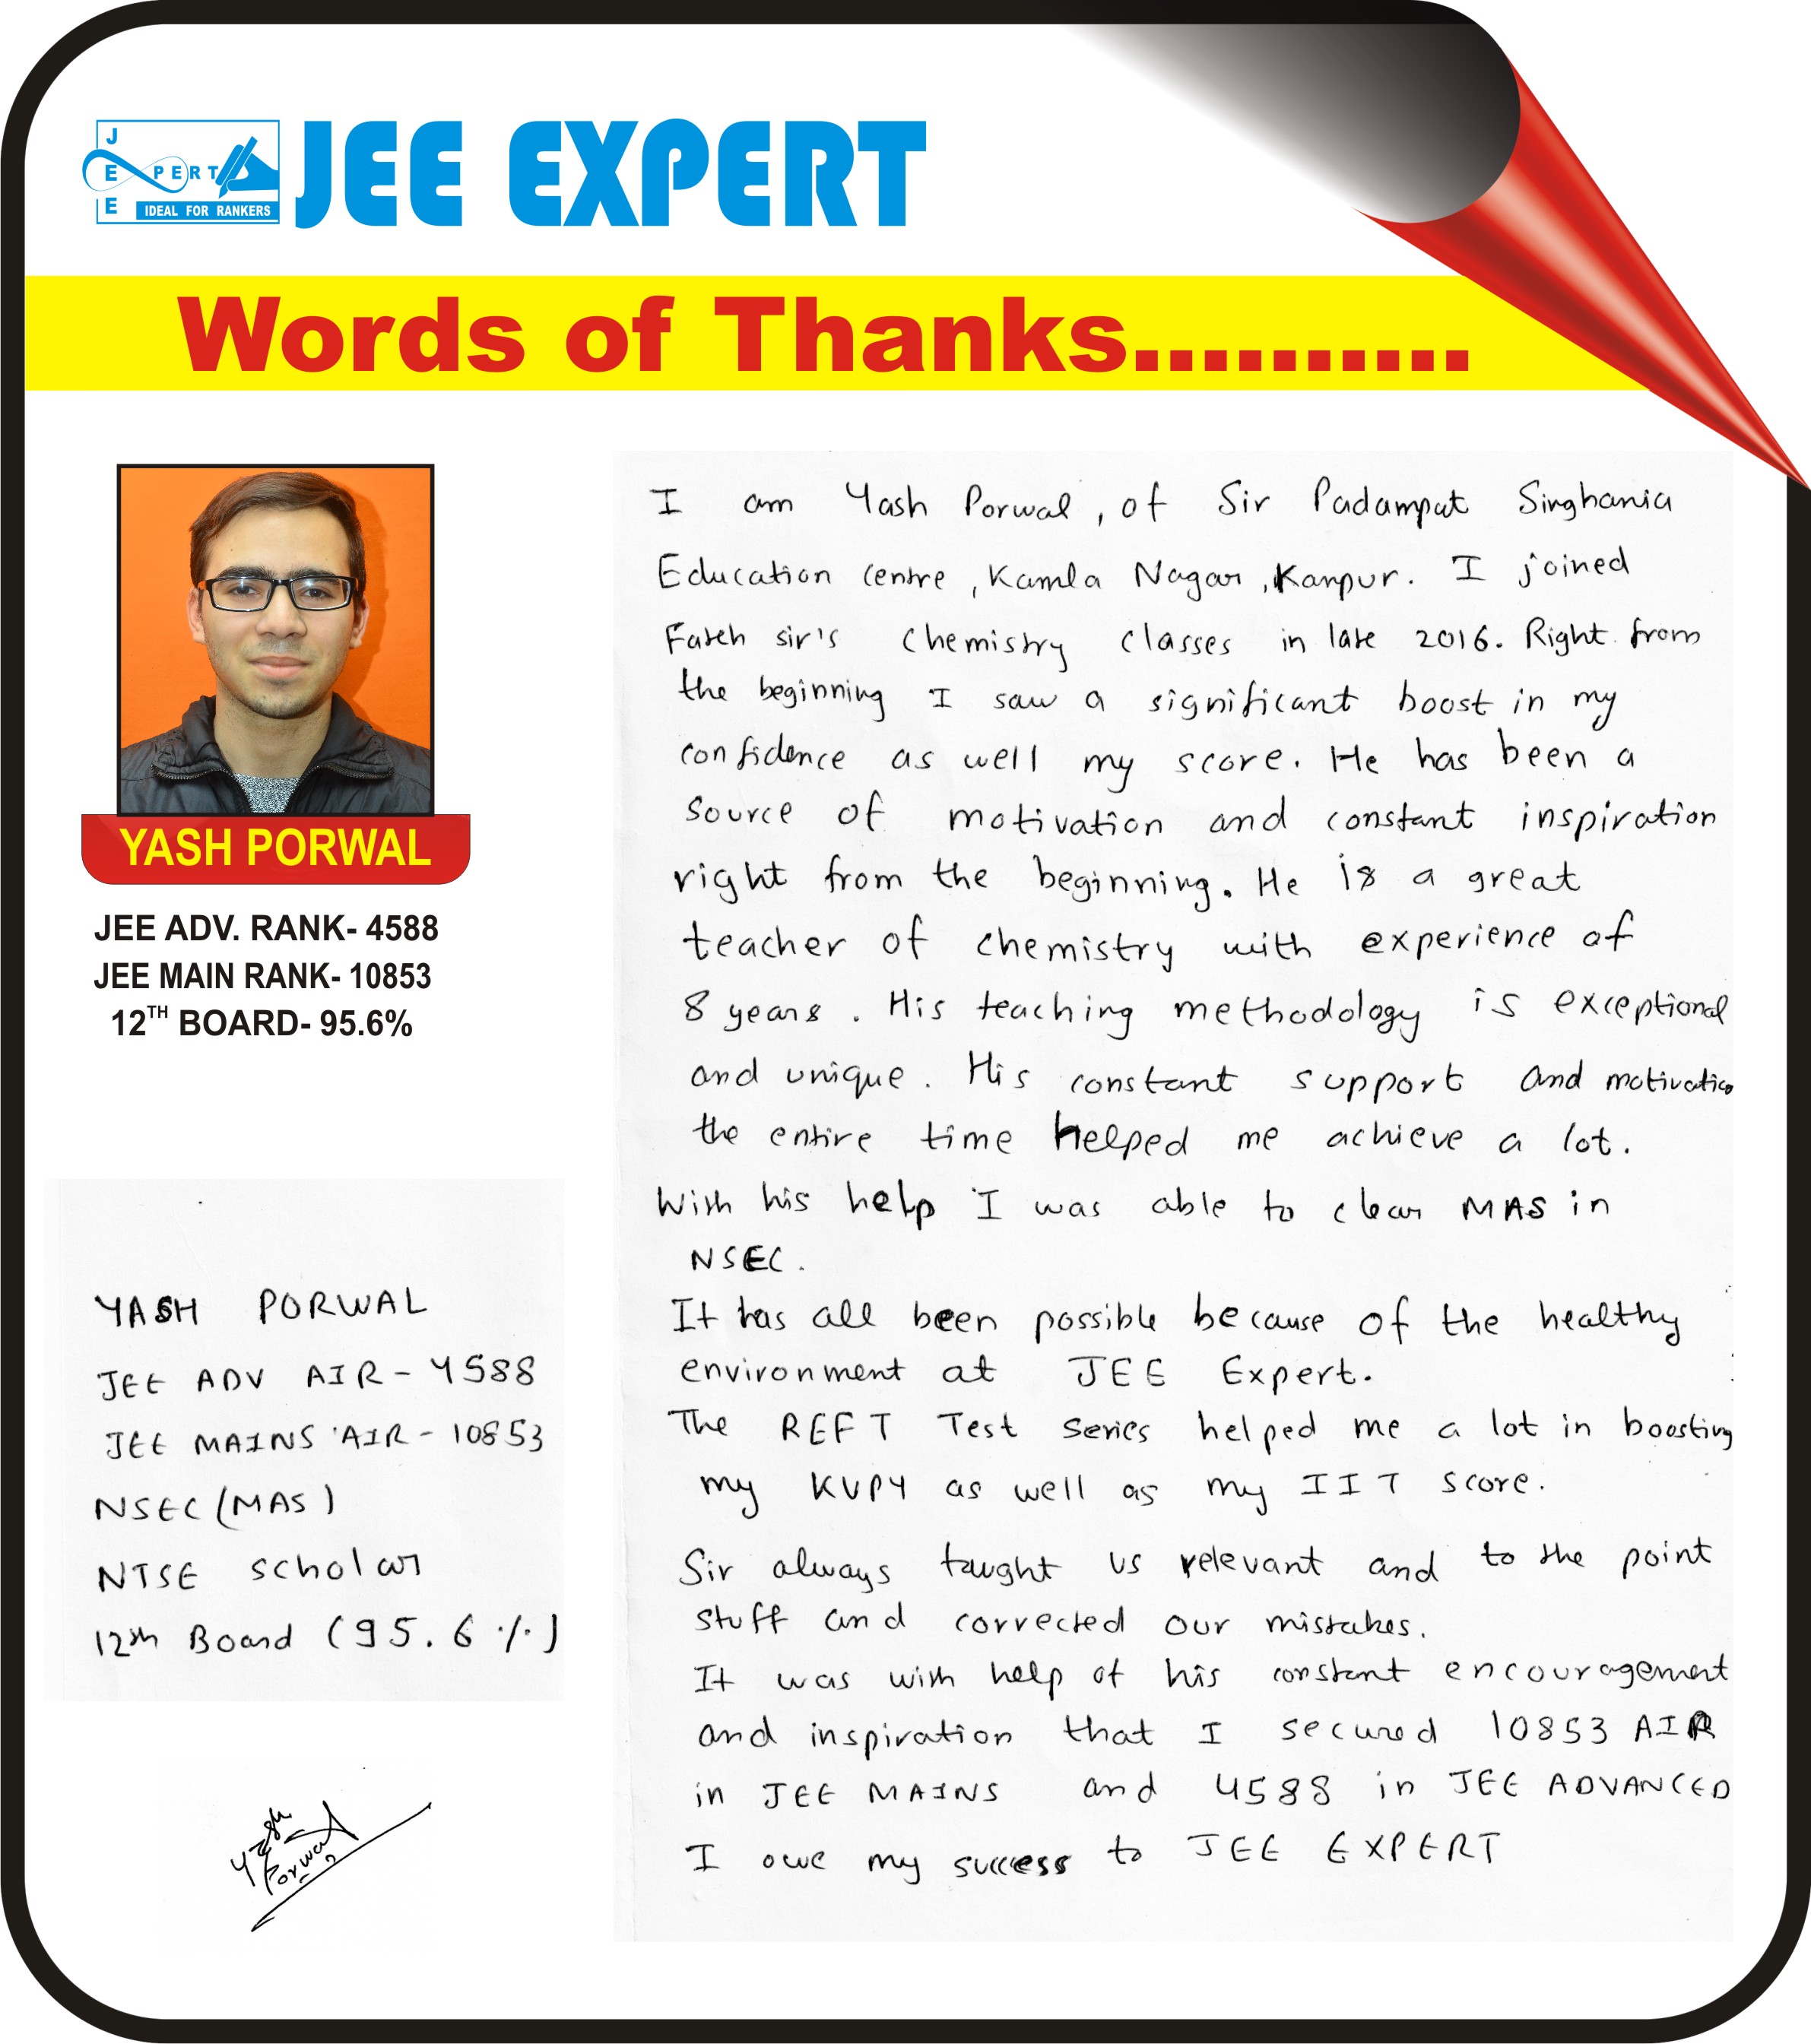 J
E XPERT
E IDEAL FOR RANKERS
JEE EXPERT
Words of Thanks..........
YASH PORWAL
JEE ADV. RANK- 4588
JEE MAIN RANK- 10853
12TH BOARD- 95.6%
YASH PORWAL
JEE ADV AIR - 4588
JEE MAINS AIR - 10853
NSEC (MAS)
NTSE scholar
12th Board (95.6 %)
Yash
Porwal
I am Yash Porwal, of Sir Padampat Singhania
Education centre, Kamla Nagar, Kanpur. I joined
Fateh sir's chemistry classes in late 2016. Right from
the beginning I saw a significant boost in my
confidence as well my score. He has been a
source of motivation and constant inspiration
right from the beginning. He is a great
teacher of chemistry with experience of
8 years. His teaching methodology is exceptional
and unique. His constant support and motivatio
the entire time helped me achieve a lot.
With his help I was able to clear MAS in
NSEC.
It has all been possible because of the healthy
environment at JEE Expert.
The REFT Test series helped me a lot in boosting
my KVPY as well as my IIT score.
Sir always taught us relevant and to the point
stuff and corrected our mistakes.
It was with help of his constant encouragement
and inspiration that I secured 10853 AIR
in JEE MAINS and 4588 in JEE ADVANCED
I owe my success to JEE EXPERT